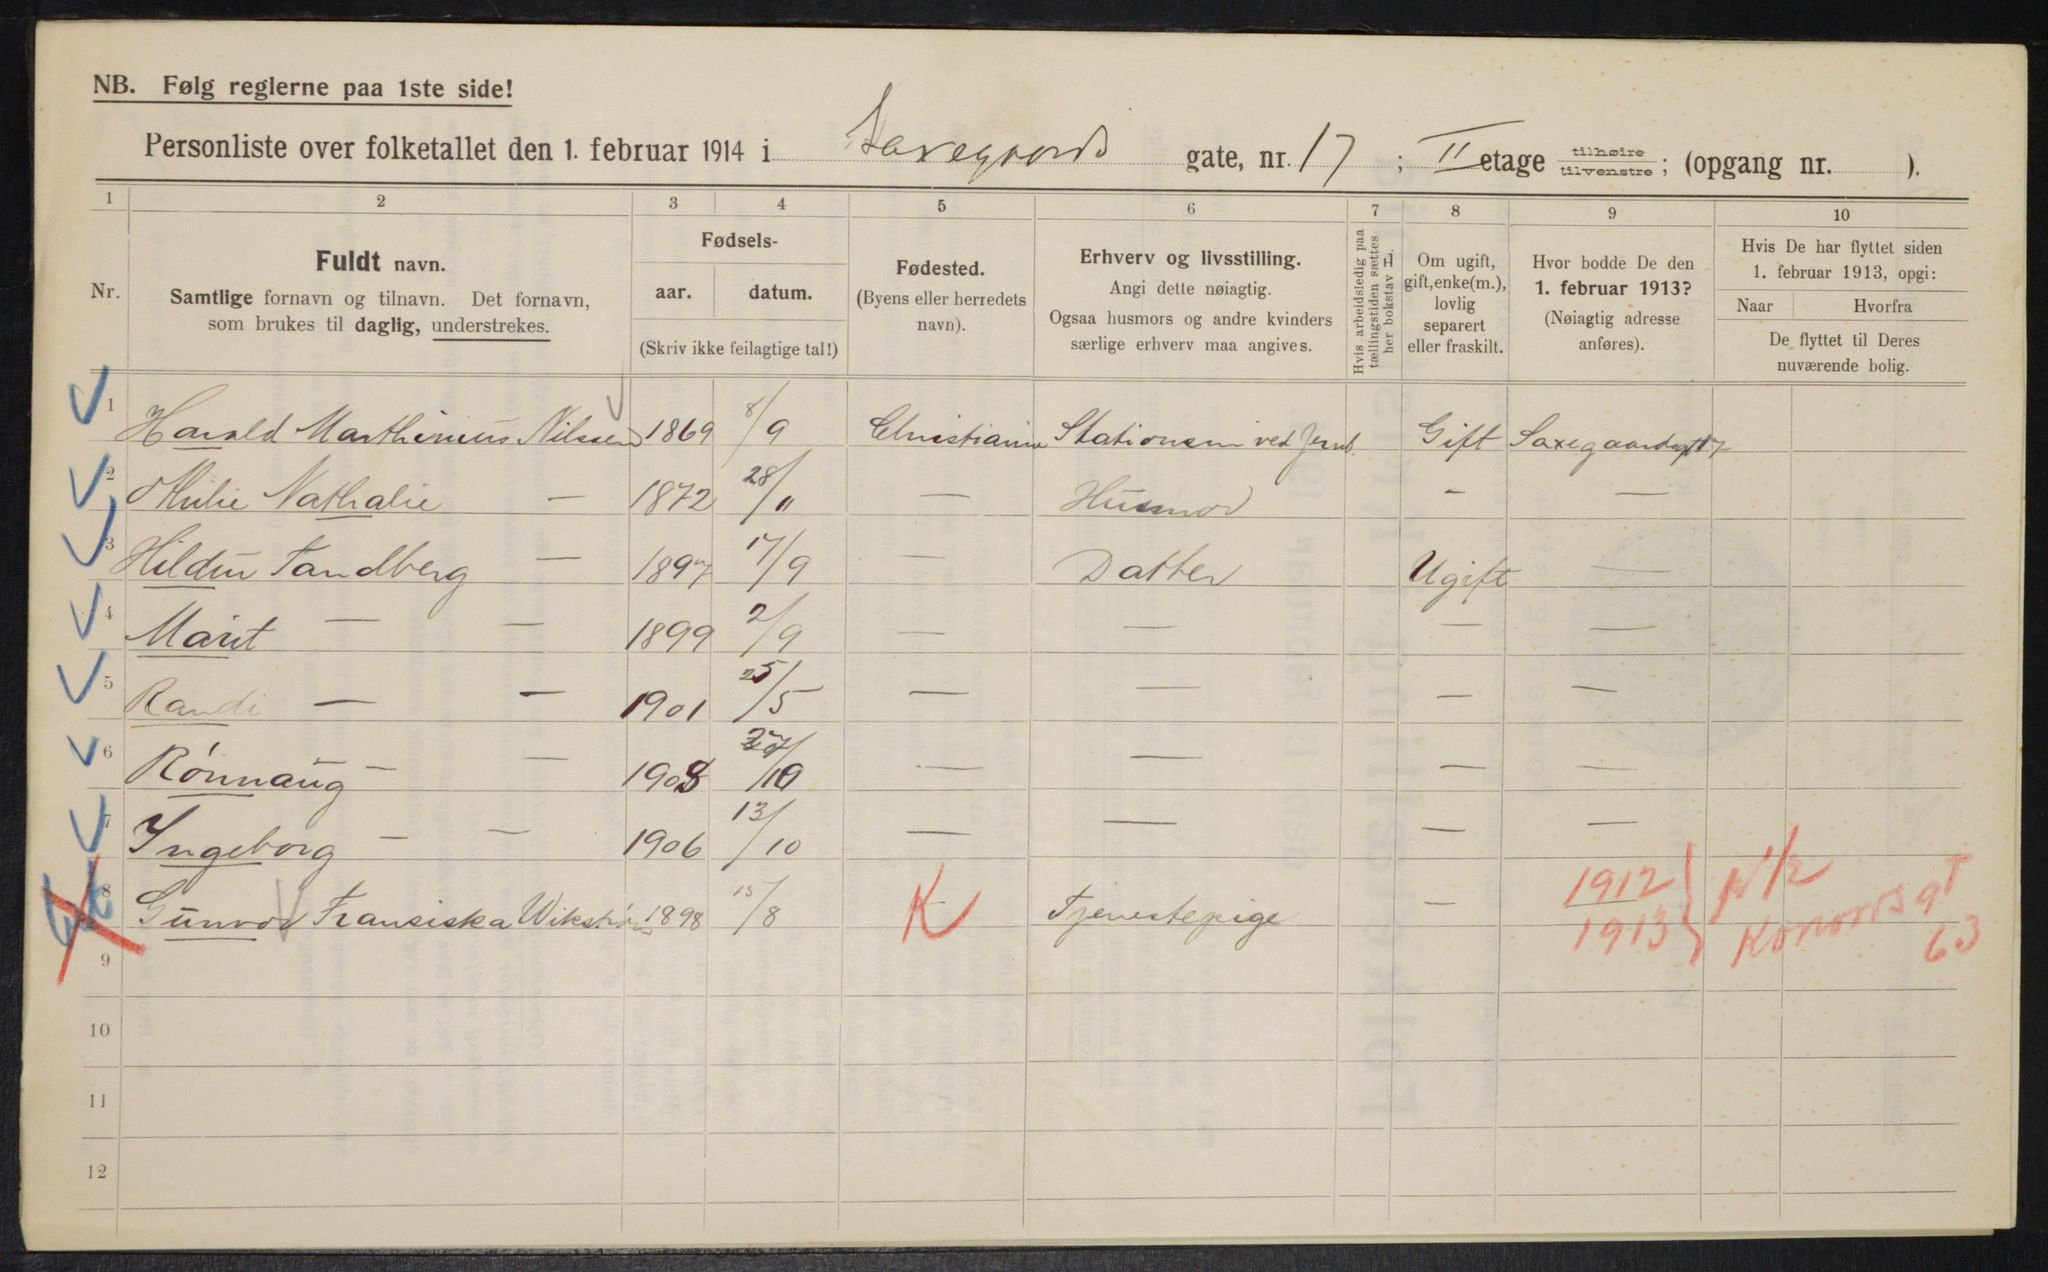 NB. Følg reglerne paa 1ste side!
Personliste over folketallet den 1. februar 1914 i Saxegaards gate, nr. 17 ; II etage tilhøire tilvenstre ; (opgang nr. ).
1 2 3 4 5 6 7 8 9 10
Nr.
Fuldt navn.
Samtlige fornavn og tilnavn. Det fornavn,
som brukes til daglig, understrekes.
Fødsels-
aar. datum.
(Skriv ikke feilagtige tal!)
Fødested.
(Byens eller herredets
navn).
Erhverv og livsstilling.
Angi dette nøiagtig.
Ogsaa husmors og andre kvinders
særlige erhverv maa angives.
Hvis arbeidsledig paa
tællingstiden sættes
her bokstav L.
Om ugift,
gift, enke(m.),
lovlig
separert
eller fraskilt.
Hvor bodde De den
1. februar 1913?
(Nøiagtig adresse
anføres).
Hvis De har flyttet siden
1. februar 1913, opgi:
Naar Hvorfra
De flyttet til Deres
nuværende bolig.
1 Harald Marthinius Nilssen 1869 8/9 Christiania Stationsm ved Jernb. Gift Saxegaardsgt 17
2 Nathalie — 1872 28/" — Husmor - —
3 Hildur Tandberg — 1897 17/9 — Datter Ugift —
4 Marit — — 1899 2/9 — — — —
5 Randi — — 1901 25/5 — — — —
6 Rónnaug — — 1903 27/10 — — — —
7 Ingeborg — — 1906 13/10 — — — —
8 Gunvor Fransiska Wikstrøm 1898 15/8 K Tjenestepige — 1912
1913
63
9
10
11
12